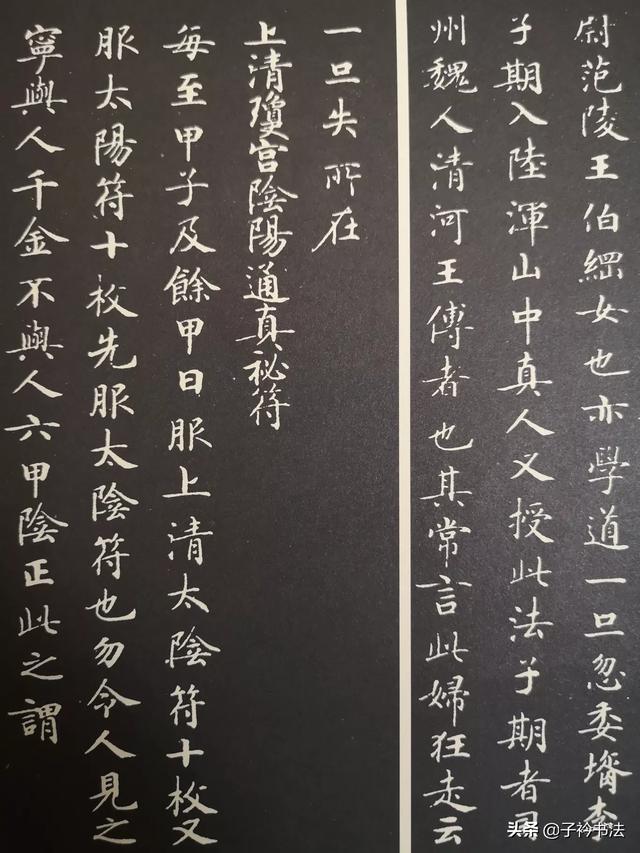 尉范陵王伯綱女也亦學道一旦忽委壻李
子期入陸渾山中真人又授此法子期者司
州魏人清河王傅者也其常言此婦狂走云
一旦失所在
上清瓊宮陰陽通真祕符
每至甲子及餘甲日服上清太陰符十枚又
服太陽符十枚先服太陰符也勿令人見之
寧與人千金不與人六甲陰正此之謂
头条@子衿书法